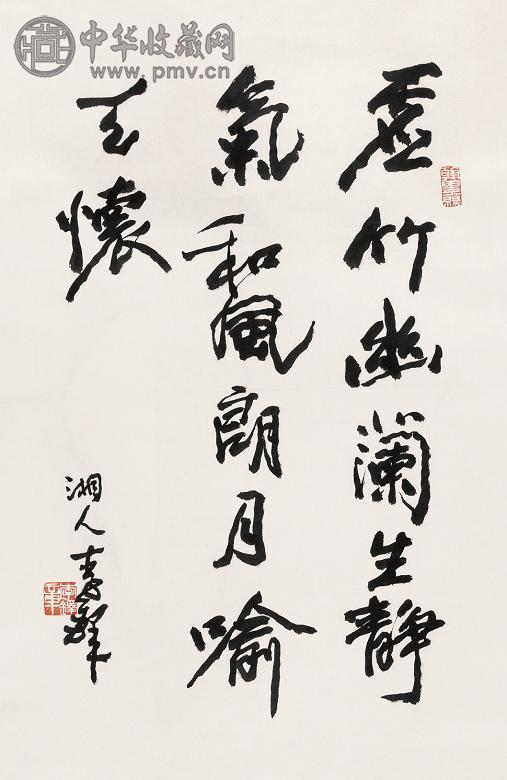 中华收藏网
www.pmv.cn
虚竹幽瀾生靜
氣和風朗月喻
天懷
湘人李鐸